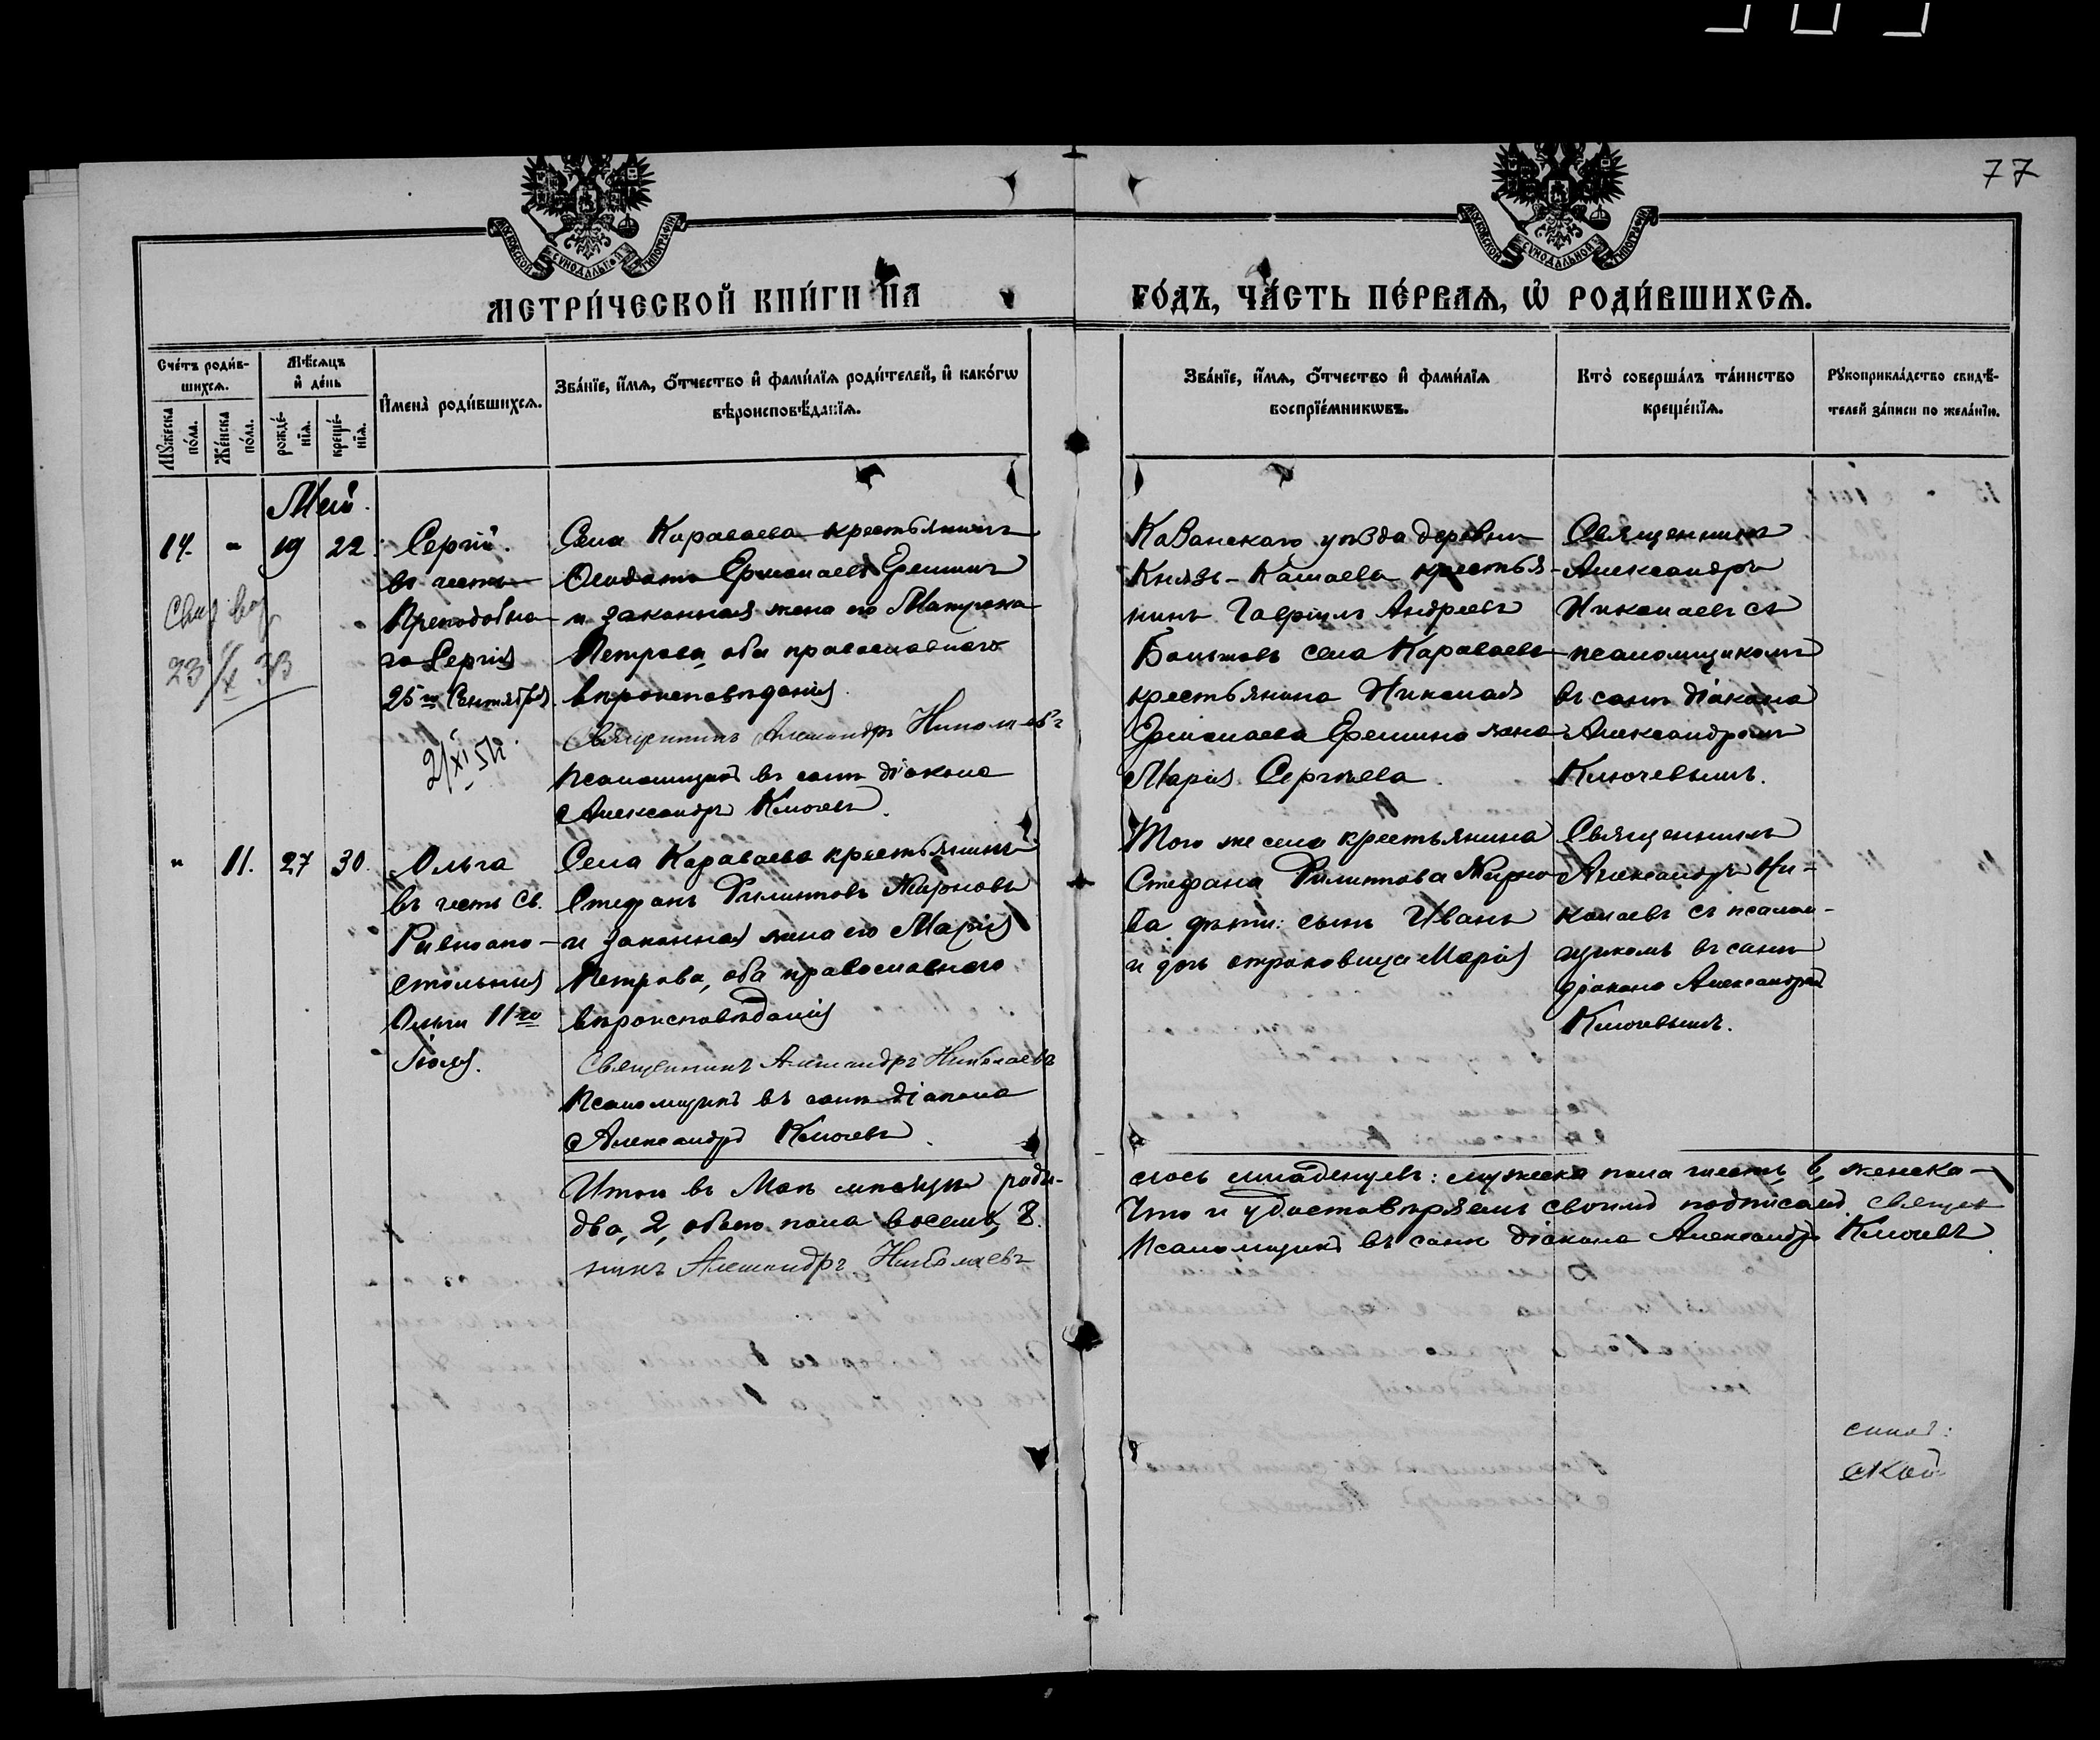 77
МОСКОВСКОЙ СѴНОДАЛЬНОЙ ТИПОГРАФІИ
МОСКОВСКОЙ СѴНОДАЛЬНОЙ ТИПОГРАФІИ
МЕТРИ́ЧЕСКОЙ КНИ́ГИ НА ГО́ДЪ, ЧА́СТЬ ПЕ́РВАѦ, Ѡ҆ РОДИ́ВШИХСѦ.
Сче́тъ роди́в-
шихсѧ.
Мѣ́сѧцъ
и҆ де́нь
Мꙋ́жеска
по́ла.
Же́нска
по́ла.
рожде́-
нїѧ.
креще́-
нїѧ.
И҆мена̀ роди́вшихсѧ.
Зва́нїе, и҆́мѧ, ѻ҆́тчество и҆ фами́лїѧ роди́телей, и҆ како́гѡ
вѣроисповѣ́данїѧ.
Зва́нїе, и҆́мѧ, ѻ҆́тчество и҆ фами́лїѧ
воспрїе́мникѡвъ.
Кто̀ соверша́лъ та́инство
креще́нїѧ.
Рꙋкоприкла́дство свидѣ́-
телей за́писи по жела́нїю.
Май.
14. " 19 22.
Сергій.
въ честь
Преподобна-
го Сергія
25го Сентября.
Села Караваева крестьянинъ
Ермолаевъ Еремин
и законная жена его Матрона
Петрова, оба православнаго
вѣроисповѣданія.
Священникъ Александръ Николаевъ
Псаломщикъ въ санѣ діакона
Александръ Ключевъ.
Казанскаго уѣзда деревни
Князь-Камаева крестья-
нинъ Гавріилъ Андреевъ
села Караваева
крестьянина Николая
Ермолаева Еремина жена
Марія Сергѣева.
Священникъ
Александръ
Николаевъ съ
псаломщикомъ
въ санѣ діакона
Александромъ
Ключевымъ.
" 11. 27 30.
Ольга
въ честь Св.
Равноапо-
стольныя
Ольги 11го
Іюля.
Села Караваева крестьянинъ
Стефанъ Филипповъ Мироновъ
и законная жена его Марія
Петрова, оба православнаго
вѣроисповѣданія
Священникъ Александръ Николаевъ
Псаломщикъ въ санѣ діакона
Александръ Ключевъ.
Того же села крестьянина
Стефана Филиппова Миро-
ва дѣти: сынъ Иванъ
и дочь отроковица Марія
Священникъ
Александръ Ни-
колаевъ съ псалом-
щикомъ въ санѣ
діакона Александромъ
Ключевымъ.
Итого въ Маѣ мѣсяцѣ роди-
лось младенцевъ: мужеска пола шесть, 6, женска-
два, 2, обоего пола восемь, 8.
Что и удостовѣряемъ своимъ подписомъ. Священ
никъ Александръ Николаевъ
Псаломщикъ въ санѣ діакона Александръ Ключевъ